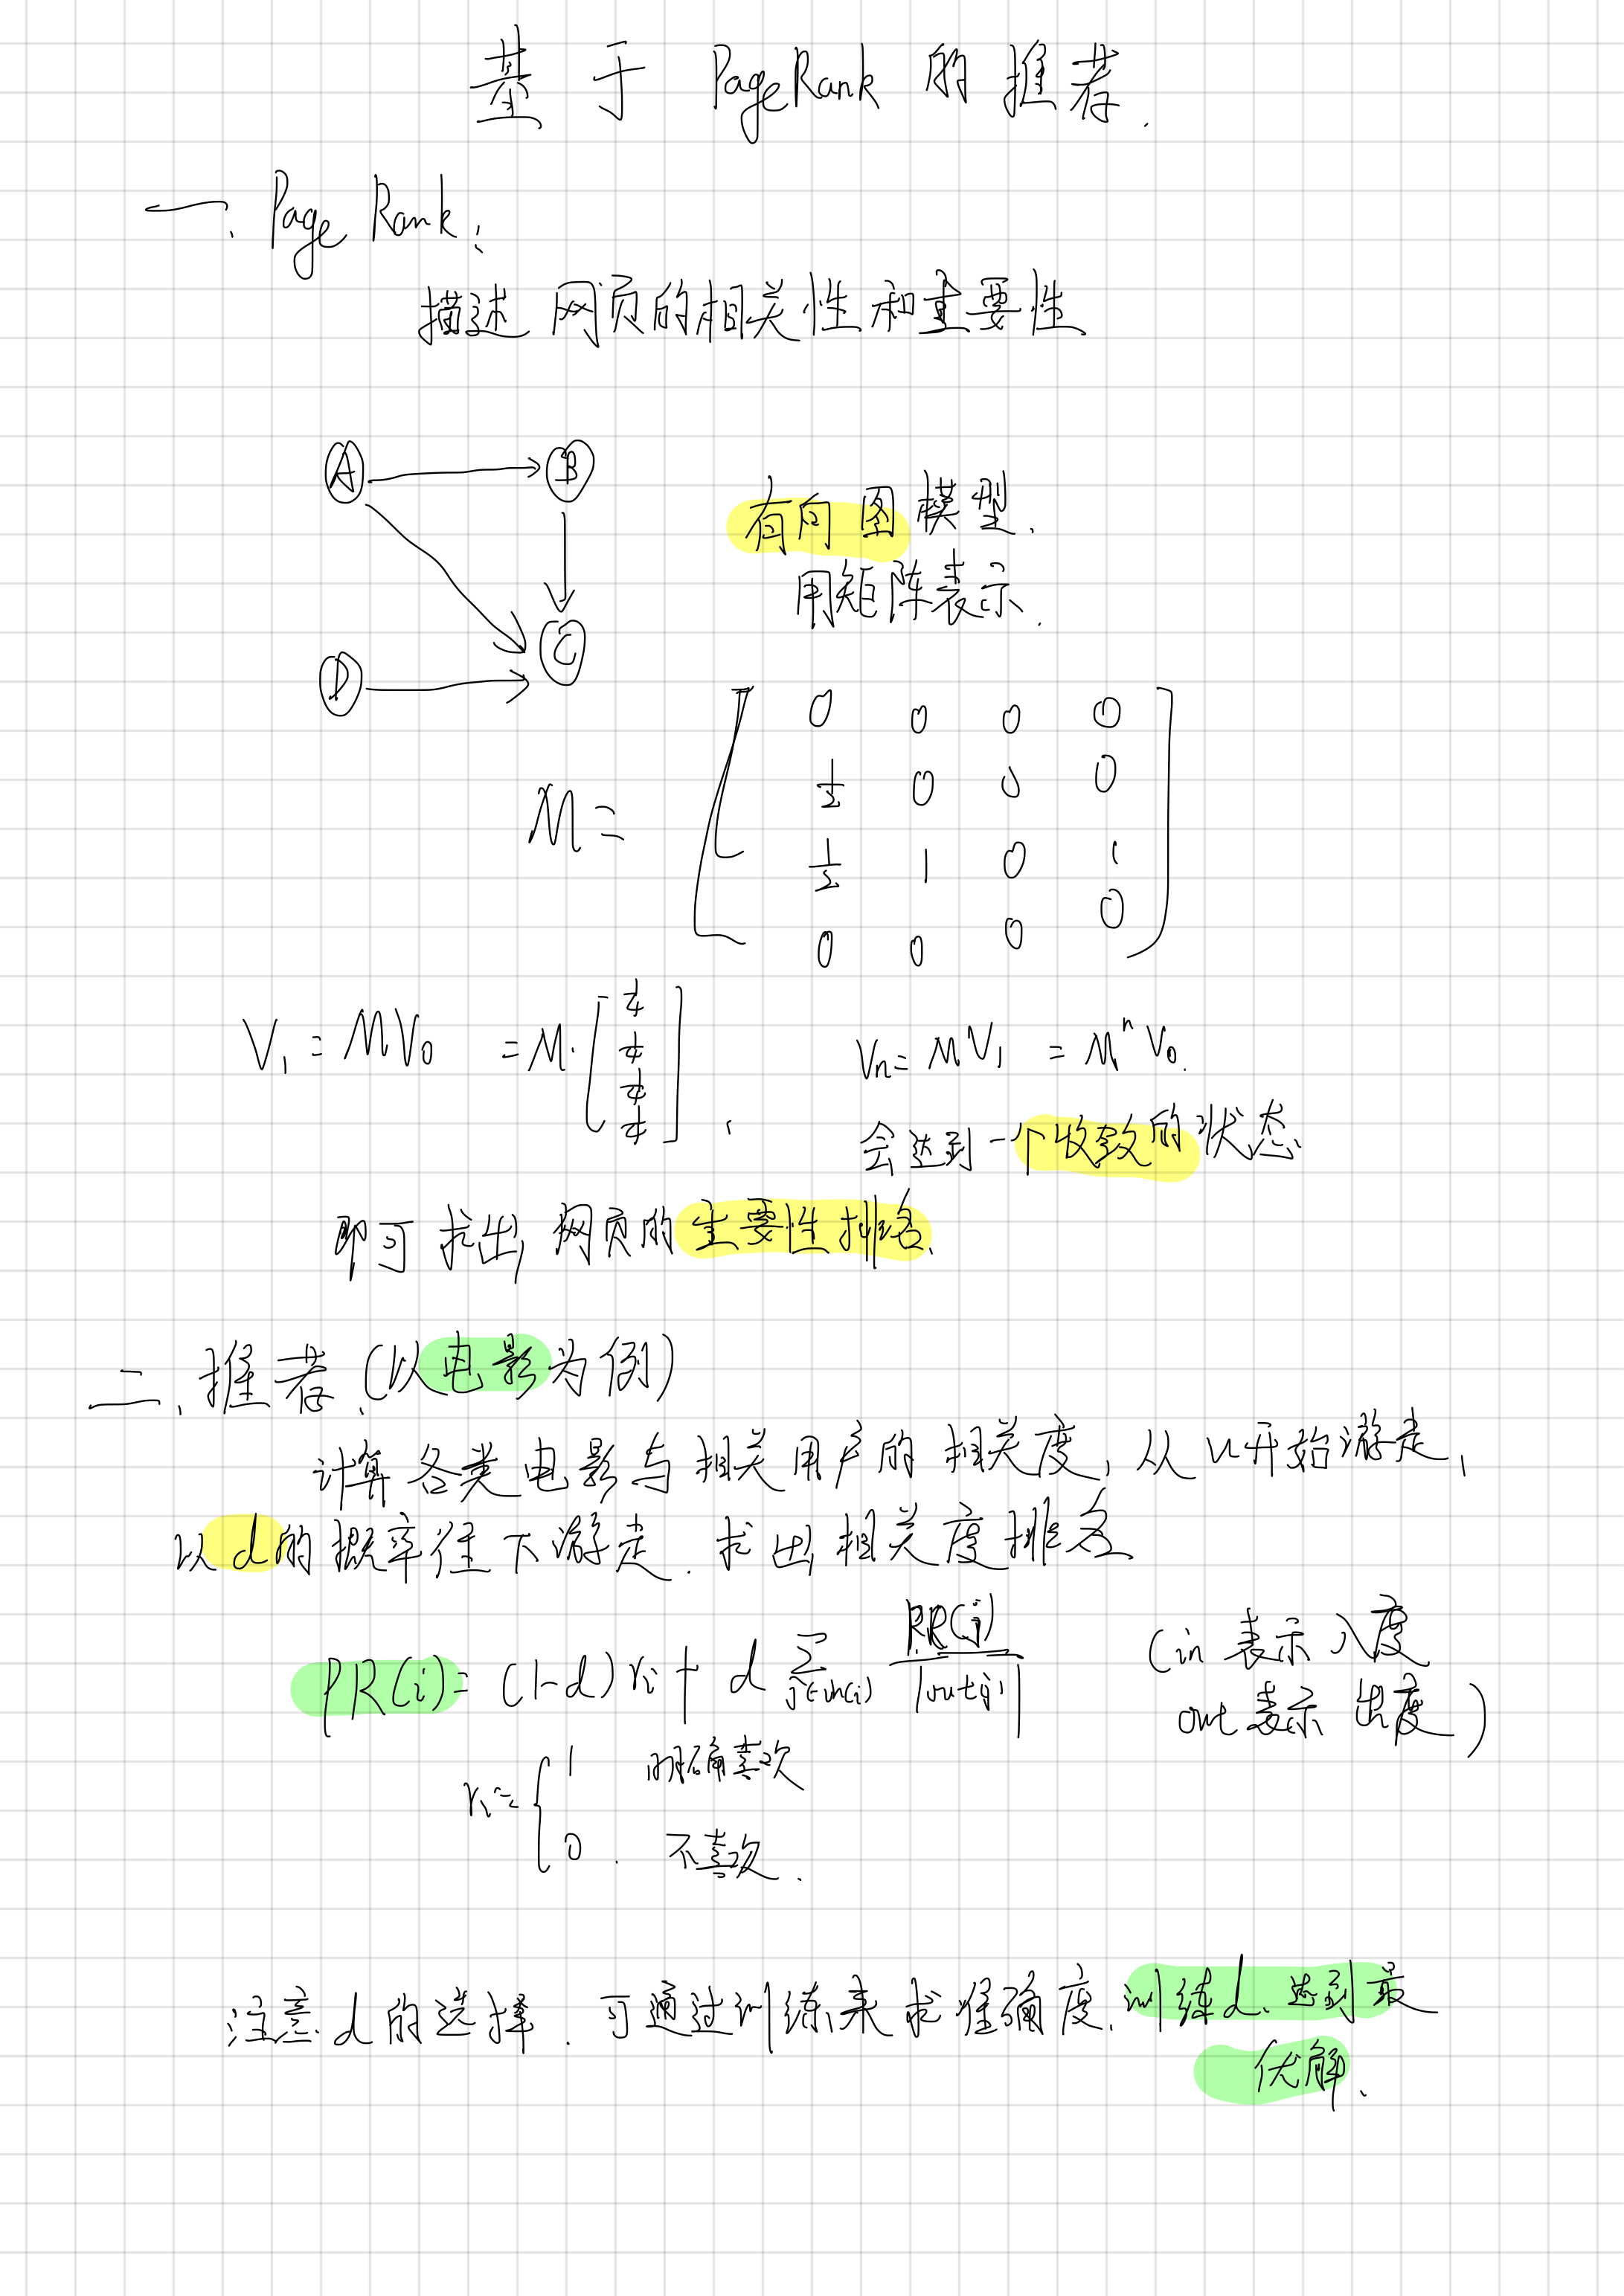 基于 PageRank 的推荐.
一. Page Rank:
描述网页的相关性和重要性
A B
有向图模型.
用矩阵表示.
C
D
0 0 0 0
1/2 0 0 0
M =
1/2 1 0 1
0 0 0 0
V₁ = MV₀ = M·[1/4 1/4 1/4 1/4],
Vn = MV₁ = MⁿV₀.
会达到一个收敛的状态
即可求出网页的重要性排名.
二. 推荐.(以电影为例)
计算各类电影与相关用户的相关度, 从u开始游走,
以d的概率往下游走. 求出相关度排名
PR(i) = (1-d) ri + d ∑j∈in(i) PR(j)/|out(j)| (in 表示入度
out 表示出度)
ri = { 1 明确喜欢
0. 不喜欢.
注意d的选择. 可通过训练来求准确度. 训练d. 达到最
优解.